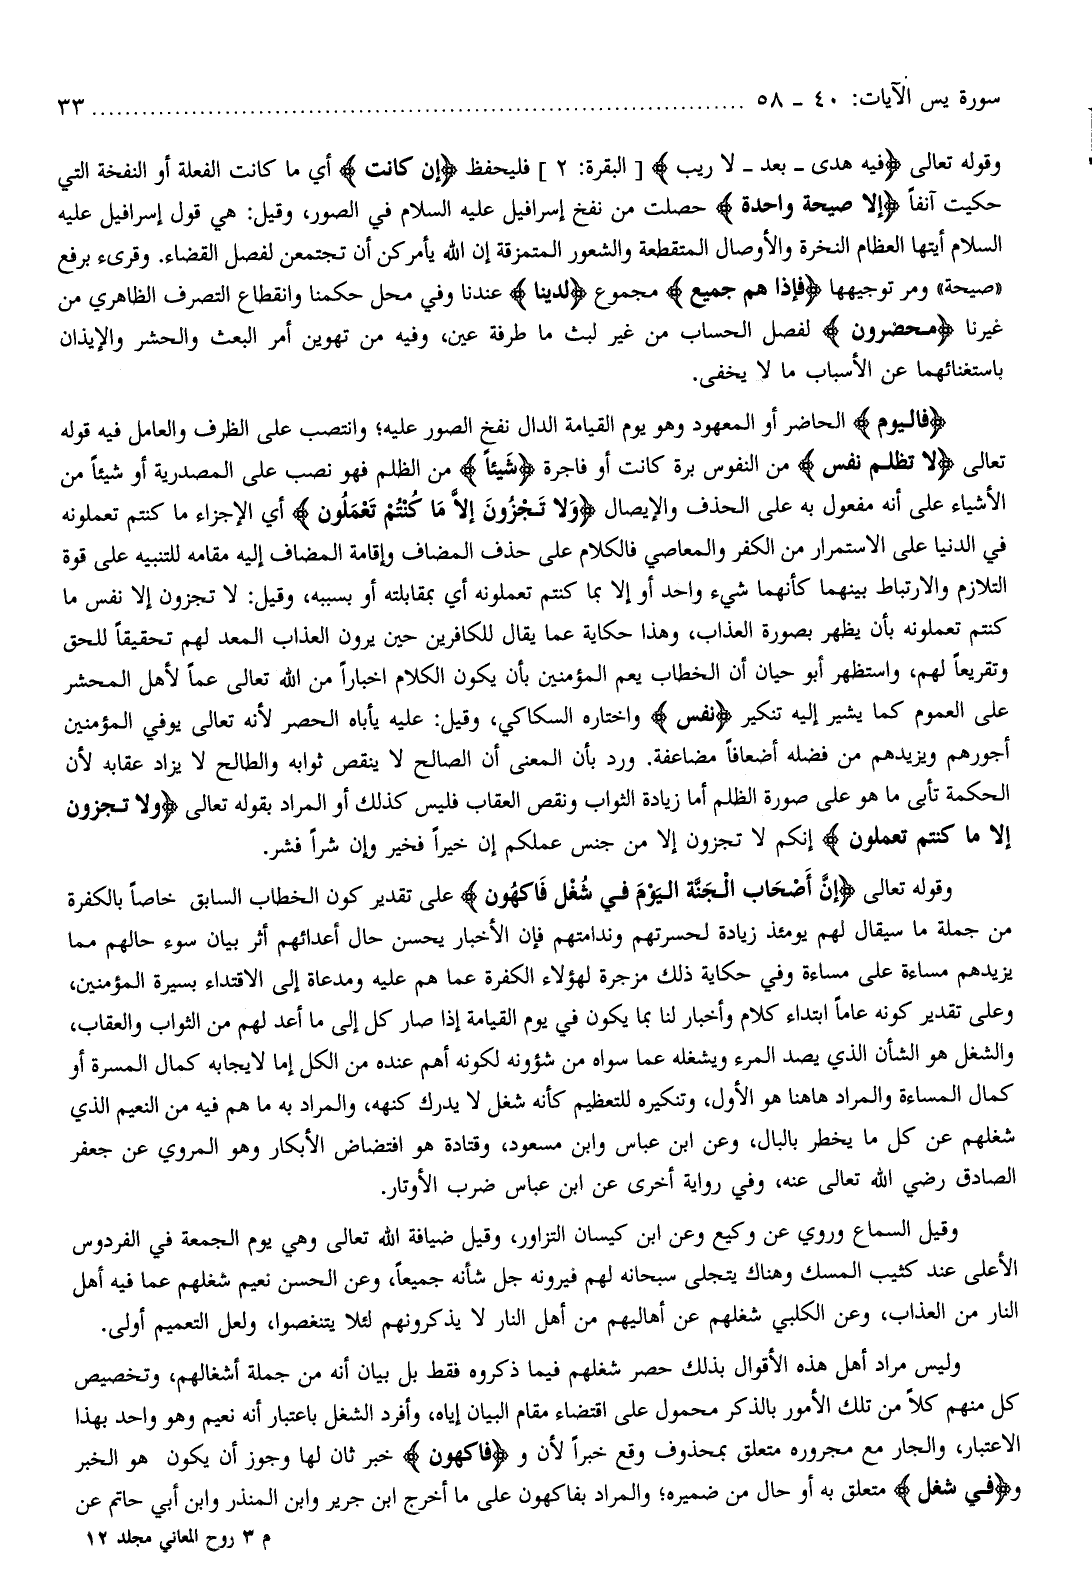 سورة يس الآيات: ٤٠ ـ ٥٨ ........................................................................ ٣٣
وقوله تعالى ﴿فيه هدى ـ بعد ـ لا ريب﴾ [ البقرة: ٢ ] فليحفظ ﴿إن كانت﴾ أي ما كانت الفعلة أو النفخة التي
حكيت آنفاً ﴿إلا صيحة واحدة﴾ حصلت من نفخ إسرافيل عليه السلام في الصور، وقيل: هي قول إسرافيل عليه
السلام أيتها العظام النخرة والأوصال المتقطعة والشعور المتمزقة إن الله يأمركن أن تجتمعن لفصل القضاء. وقرىء برفع
«صيحة» ومر توجيهها ﴿فإذا هم جميع﴾ مجموع ﴿لدينا﴾ عندنا وفي محل حكمنا وانقطاع التصرف الظاهري من
غيرنا ﴿محضرون﴾ لفصل الحساب من غير لبث ما طرفة عين، وفيه من تهوين أمر البعث والحشر والإيذان
باستغنائهما عن الأسباب ما لا يخفى.
﴿فاليوم﴾ الحاضر أو المعهود وهو يوم القيامة الدال نفخ الصور عليه؛ وانتصب على الظرف والعامل فيه قوله
تعالى ﴿لا تظلم نفس﴾ من النفوس برة كانت أو فاجرة ﴿شَيئاً﴾ من الظلم فهو نصب على المصدرية أو شيئاً من
الأشياء على أنه مفعول به على الحذف والإيصال ﴿وَلا تَجْزُونَ إلاَّ مَا كُنْتُمْ تَعْمَلُون﴾ أي الإجزاء ما كنتم تعملونه
في الدنيا على الاستمرار من الكفر والمعاصي فالكلام على حذف المضاف وإقامة المضاف إليه مقامه للتنبيه على قوة
التلازم والارتباط بينهما كأنهما شيء واحد أو إلا بما كنتم تعملونه أي بمقابلته أو بسببه، وقيل: لا تجزون إلا نفس ما
كنتم تعملونه بأن يظهر بصورة العذاب، وهذا حكاية عما يقال للكافرين حين يرون العذاب المعد لهم تحقيقاً للحق
وتقريعاً لهم، واستظهر أبو حيان أن الخطاب يعم المؤمنين بأن يكون الكلام اخباراً من الله تعالى عماً لأهل المحشر
على العموم كما يشير إليه تنكير ﴿نفس﴾ واختاره السكاكي، وقيل: عليه يأباه الحصر لأنه تعالى يوفي المؤمنين
أجورهم ويزيدهم من فضله أضعافاً مضاعفة. ورد بأن المعنى أن الصالح لا ينقص ثوابه والطالح لا يزاد عقابه لأن
الحكمة تأبى ما هو على صورة الظلم أما زيادة الثواب ونقص العقاب فليس كذلك أو المراد بقوله تعالى ﴿ولا تجزون
إلا ما كنتم تعملون﴾ إنكم لا تجزون إلا من جنس عملكم إن خيراً فخير وإن شراً فشر.
وقوله تعالى ﴿إنَّ أَصْحَاب الْجَنَّة اليَوْمَ في شُغْل فَاكهُون﴾ على تقدير كون الخطاب السابق خاصاً بالكفرة
من جملة ما سيقال لهم يومئذ زيادة لحسرتهم وندامتهم فإن الأخبار يحسن حال أعدائهم أثر بيان سوء حالهم مما
يزيدهم مساءة على مساءة وفي حكاية ذلك مزجرة لهؤلاء الكفرة عما هم عليه ومدعاة إلى الاقتداء بسيرة المؤمنين،
وعلى تقدير كونه عاماً ابتداء كلام وأخبار لنا بما يكون في يوم القيامة إذا صار كل إلى ما أعد لهم من الثواب والعقاب،
والشغل هو الشأن الذي يصد المرء ويشغله عما سواه من شؤونه لكونه أهم عنده من الكل إما لايجابه كمال المسرة أو
كمال المساءة والمراد هاهنا هو الأول، وتنكيره للتعظيم كأنه شغل لا يدرك كنهه، والمراد به ما هم فيه من النعيم الذي
شغلهم عن كل ما يخطر بالبال، وعن ابن عباس وابن مسعود، وقتادة هو افتضاض الأبكار وهو المروي عن جعفر
الصادق رضي الله تعالى عنه، وفي رواية أخرى عن ابن عباس ضرب الأوتار.
وقيل السماع وروي عن وكيع وعن ابن كيسان التزاور، وقيل ضيافة الله تعالى وهي يوم الجمعة في الفردوس
الأعلى عند كثيب المسك وهناك يتجلى سبحانه لهم فيرونه جل شأنه جميعاً، وعن الحسن نعيم شغلهم عما فيه أهل
النار من العذاب، وعن الكلبي شغلهم عن أهاليهم من أهل النار لا يذكرونهم لئلا يتنغصوا، ولعل التعميم أولى.
وليس مراد أهل هذه الأقوال بذلك حصر شغلهم فيما ذكروه فقط بل بيان أنه من جملة أشغالهم، وتخصيص
كل منهم كلاً من تلك الأمور بالذكر محمول على اقتضاء مقام البيان إياه، وأفرد الشغل باعتبار أنه نعيم وهو واحد بهذا
الاعتبار، والجار مع مجروره متعلق بمحذوف وقع خبراً لأن و ﴿فاكهون﴾ خبر ثان لها وجوز أن يكون هو الخبر
و﴿في شغل﴾ متعلق به أو حال من ضميره؛ والمراد بفاكهون على ما أخرج ابن جرير وابن المنذر وابن أبي حاتم عن
م ٣ روح المعاني مجلد ١٢